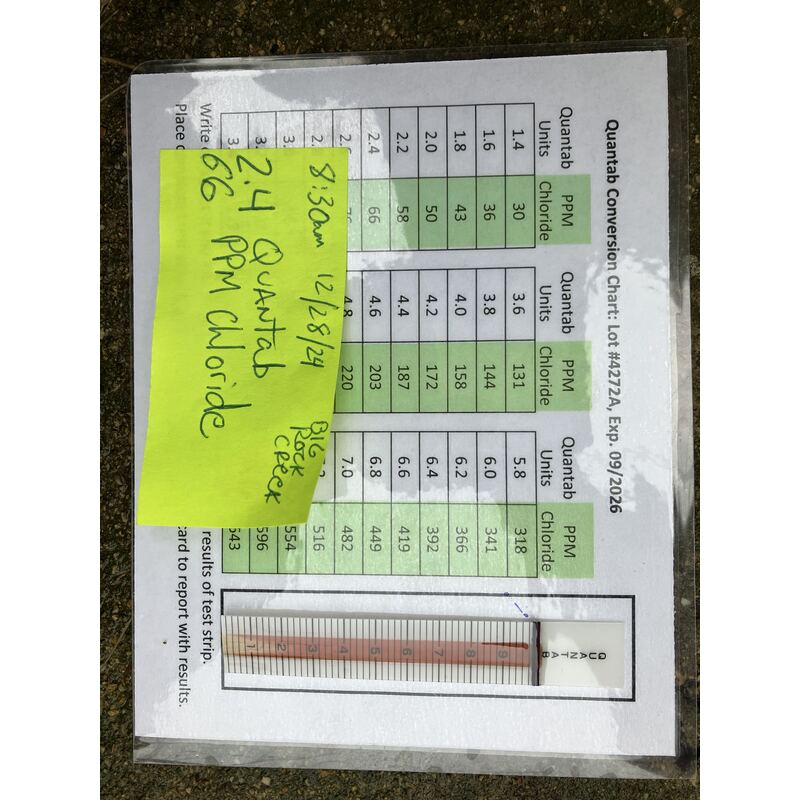 Quantab Conversion Chart: Lot #4272A, Exp. 09/2026
Quantab Units PPM Chloride
1.4 30
1.6 36
1.8 43
2.0 50
2.2 58
2.4 66
Quantab Units PPM Chloride
3.6 131
3.8 144
4.0 158
4.2 172
4.4 187
4.6 203
4.8 220
Quantab Units PPM Chloride
5.8 318
6.0 341
6.2 366
6.4 392
6.6 419
6.8 449
7.0 482
516
554
596
643
QUANTAB
9
8
7
6
5
4
3
2
1
8:30am 12/28/24
BIG
ROCK
CREEK
2.4 QUANTab
66 PPM Chloride
Write
results of test strip.
Place
card to report with results.